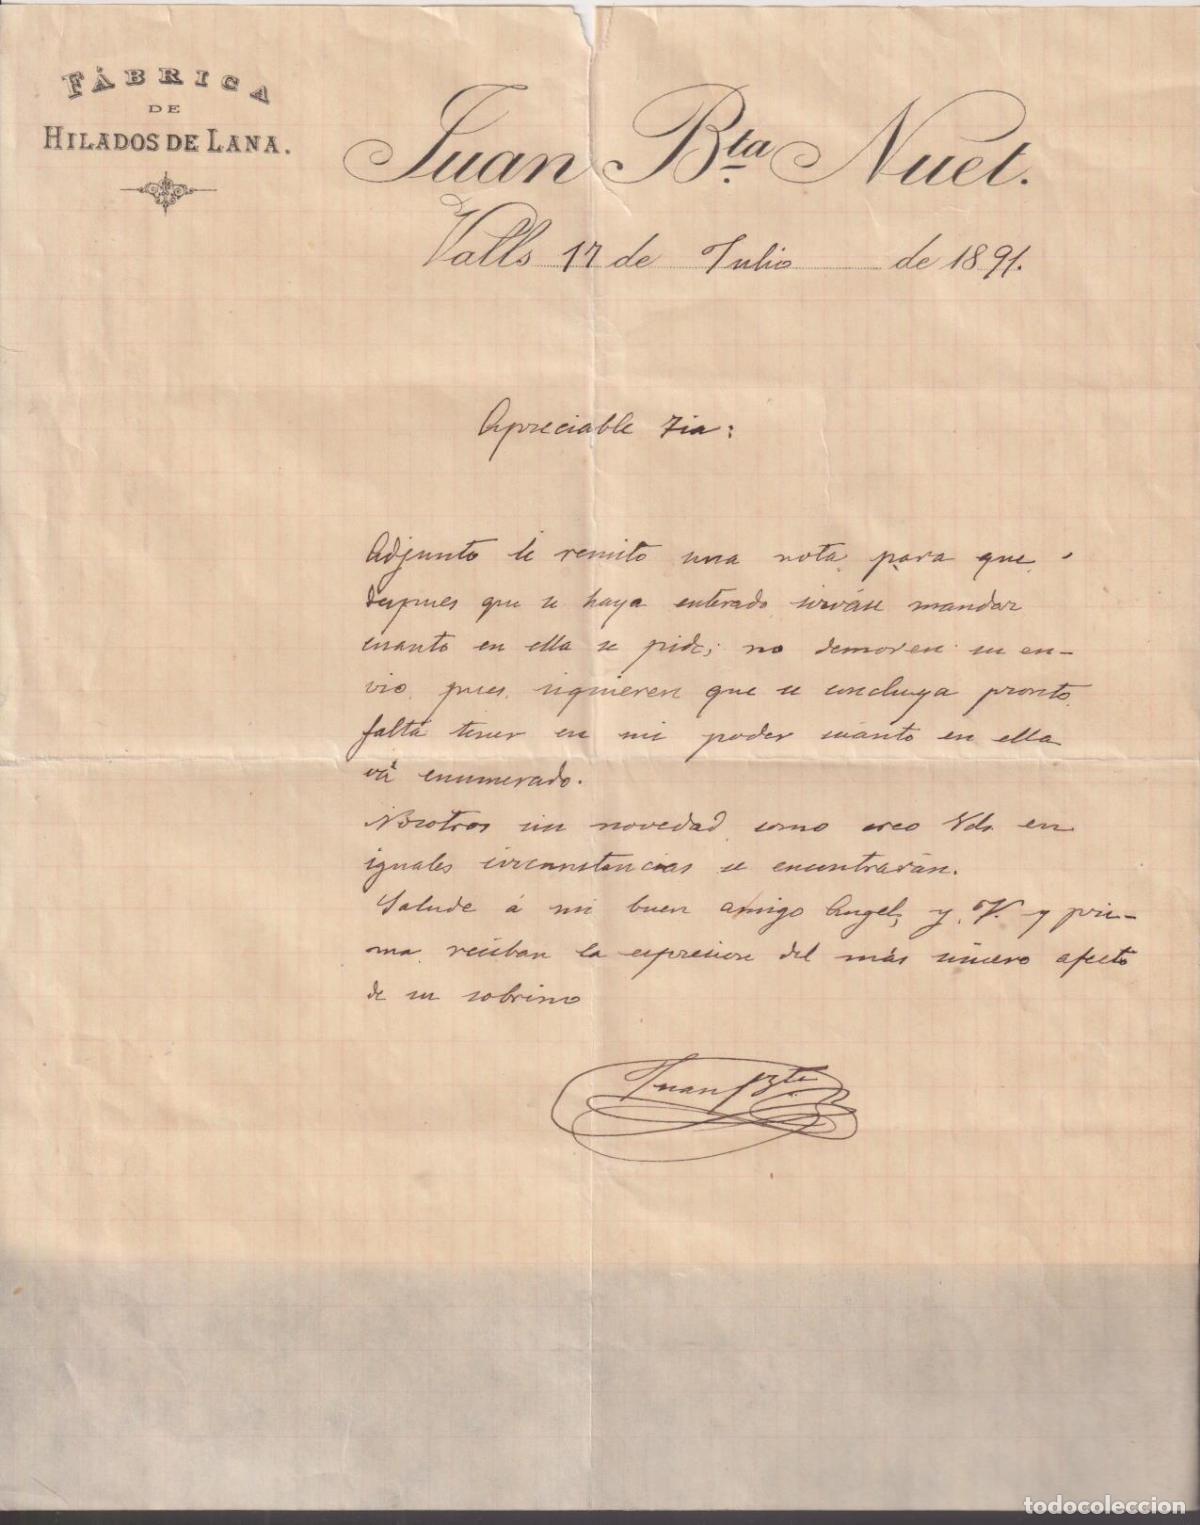 FÁBRICA
DE
HILADOS DE LANA.
Juan Bta. Nuet.
Valls 17 de Julio de 1891.
Apreciable Tia:
Adjunto le remito una nota, para que,
despues que se haya enterado sirváse mandar
cuanto en ella se pide; no demoren su en-
vio, pues, si quieren que se concluya pronto,
falta tener en mi poder cuánto en ella
vá enumerado.
Nosotros sin novedad, como creo Vds. en
iguales circunstancias se encontrarán.
Salude á mi buen amigo Angel, y V. y pri-
ma, reciban la expresion del más sincero afecto
de su sobrino
Juan Bta.
todocoleccion